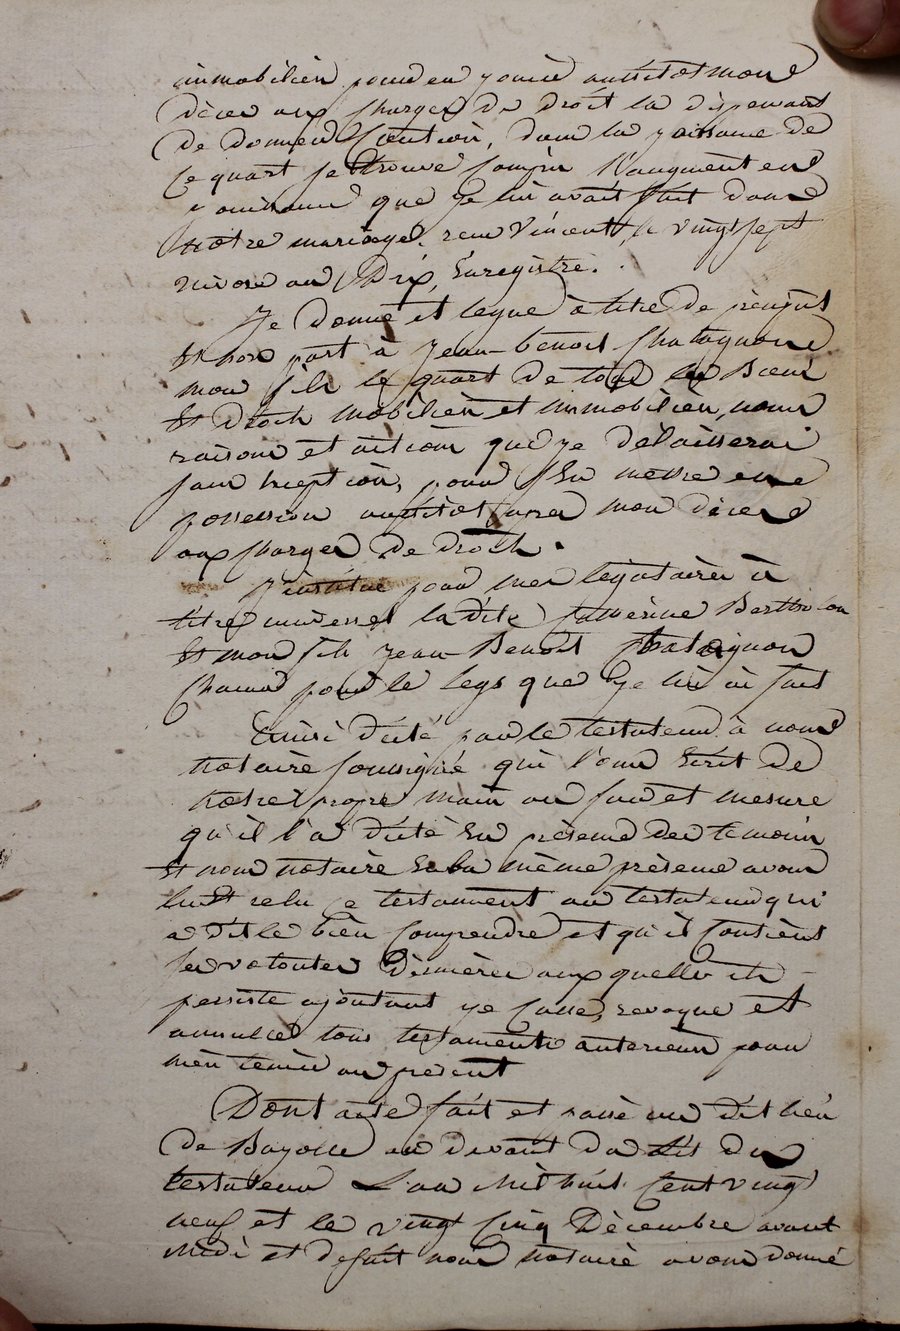 immobilièr pour en jouir aussitot mon
décer aux charges de droit la dispensant
de donner caution, dans la jouissance de
ce quart se trouve compris l'augment en
jouissance que je lui avait fait dans
notre mariage. recu Vincent, le vingt sept
nivose an Dix, Enregistré.
Je donne et legue à titre de préciput
et hors part à Jean-benoit Chataignon
mon fils le quart de tous les Biens
et droits mobilièr et immobilièr, noms
raisons et actions que je délaisserai
sans exception, pour s'en mettre en
possession aussitot apres mon décer
aux charges de droits.
J'institue pour mes legataires à
titre universel ladite Catherine Bertholon
et mon fils Jean-Benoit Chataignon
Chacun pour le legs que je lui ai fait
Ainsi dicté par le testateur à nous
notaire soussigné qui l'avons écrit de
notre propre main au fur et mesure
qu'il l'a dicté en présence des temoins
et nous notaire en la mème présence avons
lu et relu ce testament au testateur qui
a dit le bien comprendre et qu'il contient
ses volontés dernières aux quelles il
persiste ajoutant je casse, revoque et
annulle tous testaments anterieurs pour
m'en tenir au present
Dont acte fait et passé au dit lieu
de Bayolle au devant du lit du
testateur L'an mil huit cent vingt
neuf et le vingt cinq Décembre avant
midi et de suit nous notaire avons donné